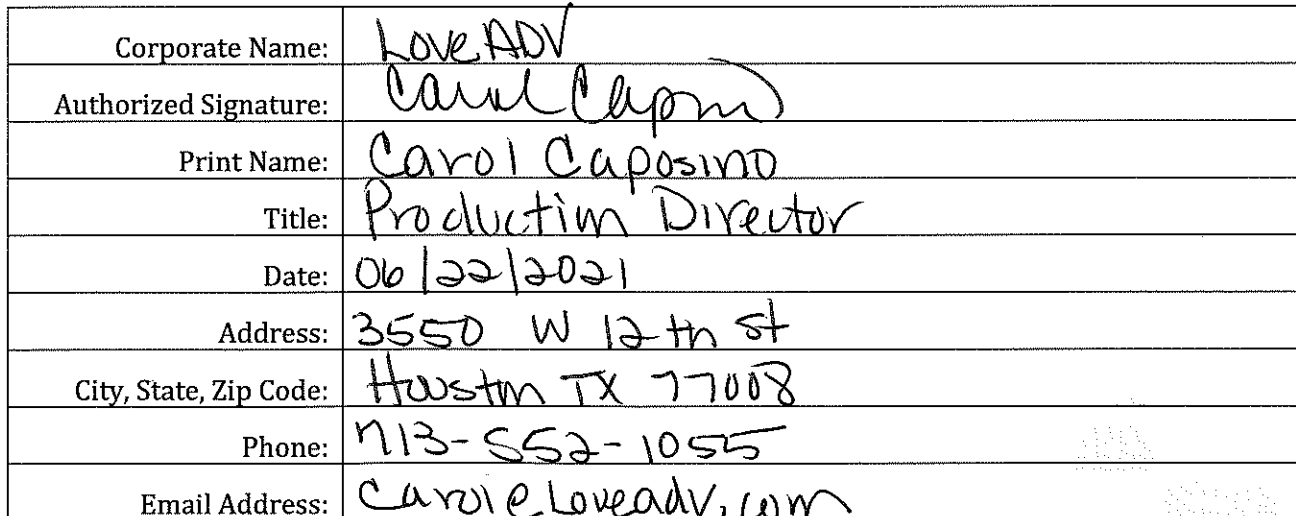 Corporate Name: Love ADV
Authorized Signature: Carol Capo
Print Name: Carol Caposino
Title: Production Director
Date: 06/22/2021
Address: 3550 W 12th St
City, State, Zip Code: Houston TX 77008
Phone: 713-552-1055
Email Address: Carol@Loveadv.com